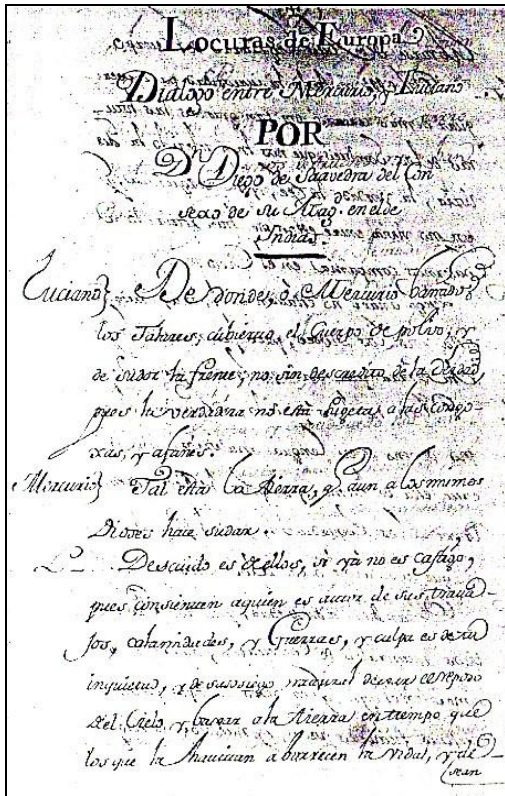 Locuras de Europa
Dialogo entre Mercurio, y Luciano
POR
Dn. Diego de Saavedra del Con
sexo de su Mag. en el de
Indias.
Luciano} De donde, ô Mercurio
los Talares, cubierto el Cuerpo de polvo, y
de sudor la frente, no sin descredito de la
pues la verdadera no está sugeta a las congo-
xas, y afanes.
Mercurio} Tal está la tierra, q. aun a los mismos
Dioses hace sudar.
L- Descuido es de ellos, si ya no es castigo,
pues consienten a quien es autor de sus traba-
jos, calamidades, y Guerras, y culpa es de tu
inquietud, y desasosiego natural dexar el reposo
del Cielo y baxar a la tierra en tiempo que
los que la havitan aborrecen la vida, y de-
sean